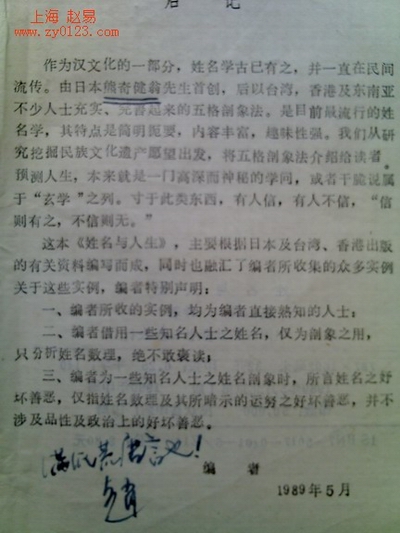 上海 赵易
www.zy0123.com
后 记
作为汉文化的一部分，姓名学古已有之，并一直在民间
流传。由日本熊奇健翁先生首创，后以台湾，香港及东南亚
不少人士充实、完善起来的五格剖象法。是目前最流行的姓
名学，其特点是简明扼要，内容丰富，趣味性强。我们从研
究挖掘民族文化遗产愿望出发，将五格剖象法介绍给读者。
预测人生，本来就是一门高深而神秘的学问，或者干脆说属
于“玄学”之列。寸于此类东西，有人信，有人不信，“信
则有之，不信则无。”
这本《姓名与人生》，主要根据日本及台湾、香港出版
的有关资料编写而成，同时也融汇了编者所收集的众多实例
关于这些实例，编者特别声明：
一、编者所收的实例，均为编者直接熟知的人士；
二、编者借用一些知名人士之姓名，仅为剖象之用，
只分析姓名数理，绝不敢亵读；
三、编者为一些知名人士之姓名剖象时，所言姓名之好
坏善恶，仅指姓名数理及其所暗示的运努之好坏善恶，并不
涉及品性及政治上的好坏善恶。
编 者
1989年5月